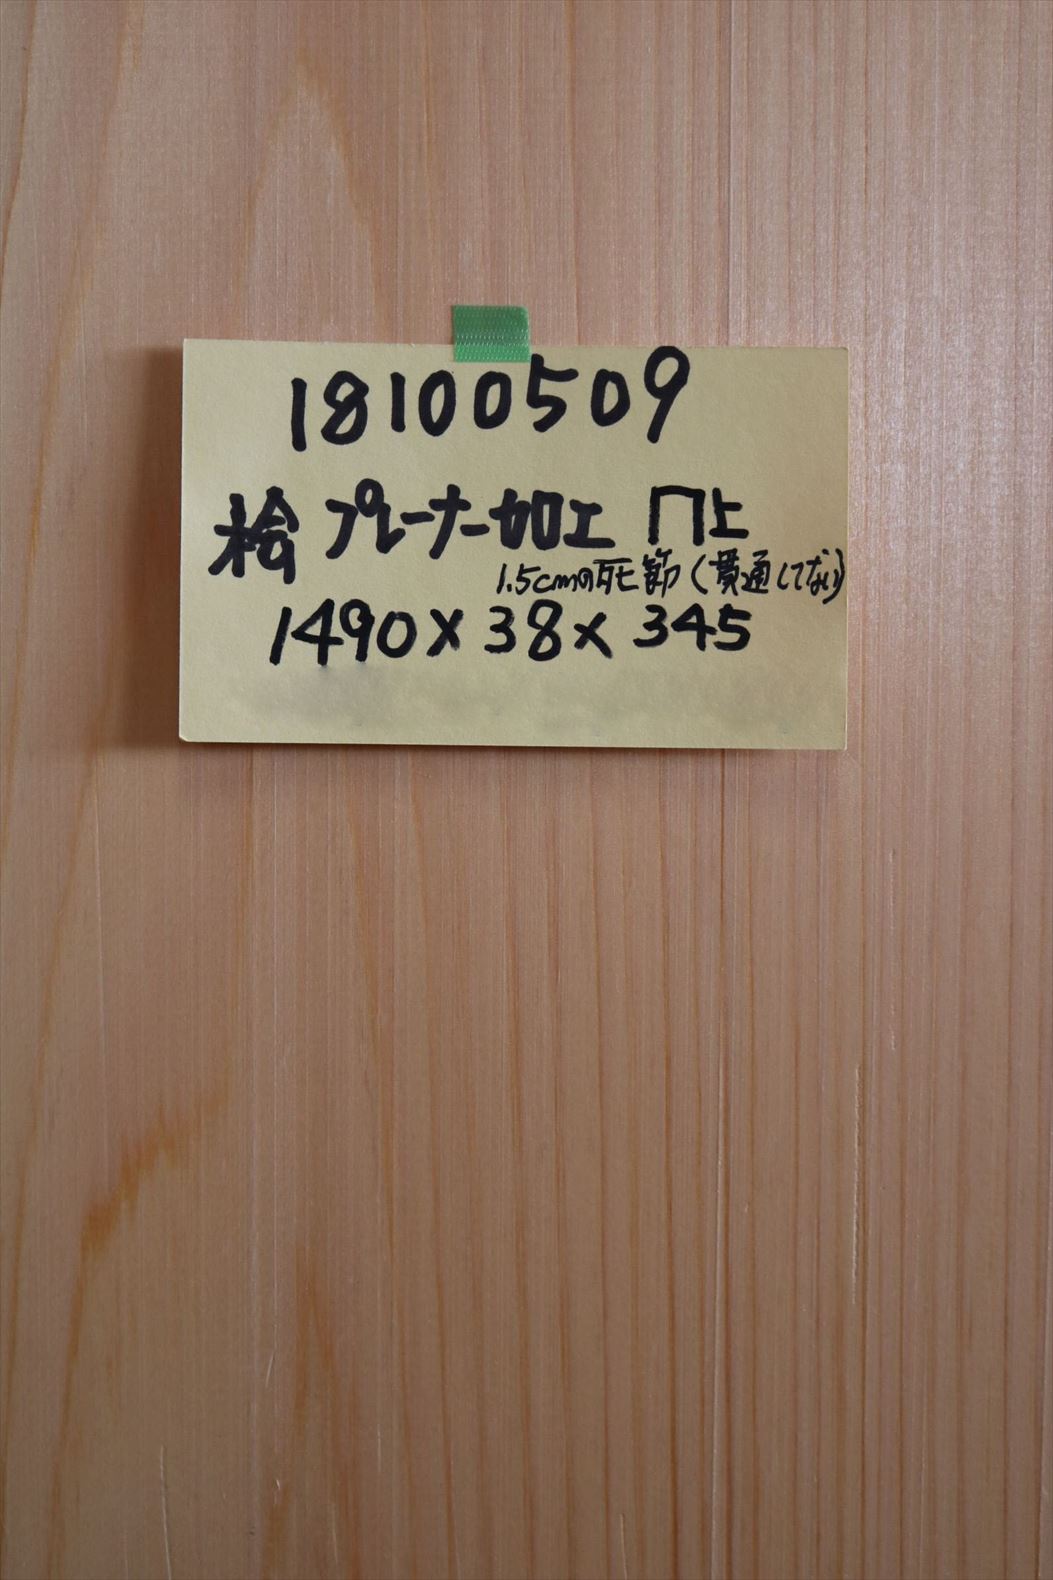 18100509
桧 プレーナー加工 円上
1.5cmの死節(貫通してない)
1490×38×345